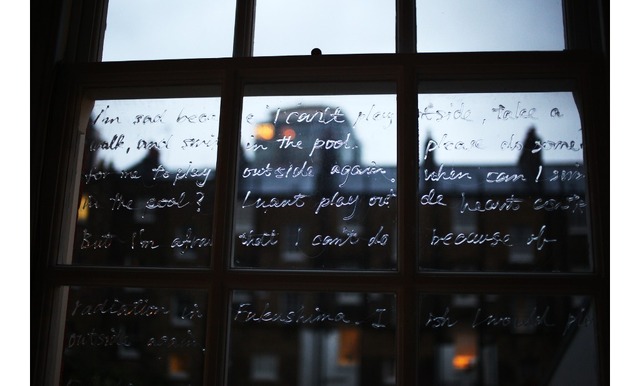 I'm sad becau e I can't play utside, take a
walk, and swim in the pool. please do some
for me to play outside again. When can I swim
in the pool? I want play out de heart cont
But I'm afrai that I can't do because of
radiation in Fukushima. I ish I would pl
outside again